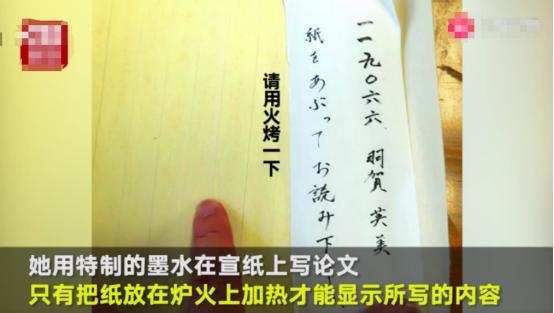 一一九〇六六 羽賀 英美
紙をあぶってお読み下
请用火烤一下
她用特制的墨水在宣纸上写论文
只有把纸放在炉火上加热才能显示所写的内容